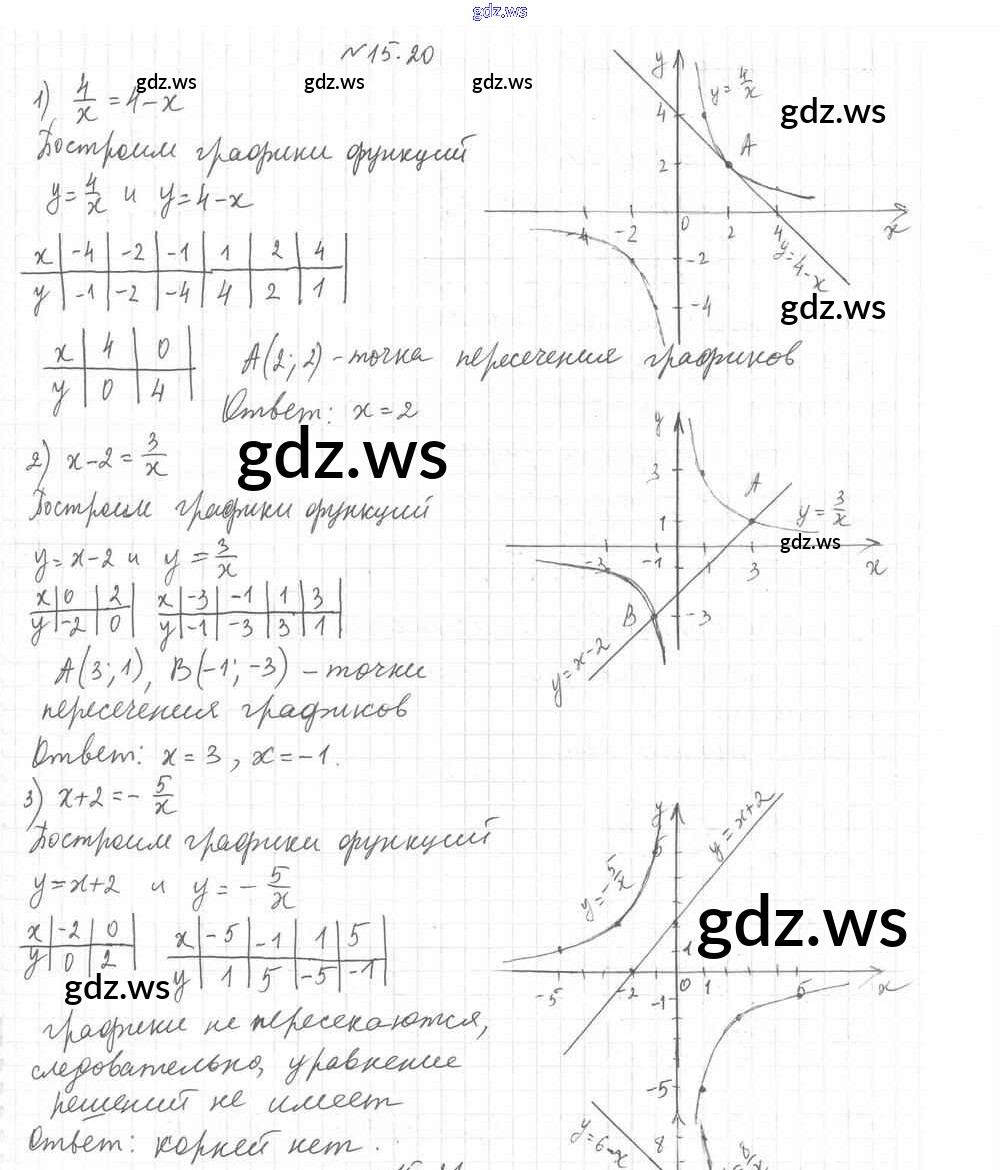 gdz.ws
№15.20
gdz.ws gdz.ws gdz.ws
1) 4/x = 4-x
Построим графики функций
y = 4/x и y = 4-x
x | -4 | -2 | -1 | 1 | 2 | 4
y | -1 | -2 | -4 | 4 | 2 | 1
x | 4 | 0
y | 0 | 4
A(2; 2) - точка пересечения графиков
Ответ: x = 2
y
y = 4/x
gdz.ws
4
A
2
0
-4 -2 2 4 x
-2
y = 4-x
gdz.ws
-4
gdz.ws
2) x-2 = 3/x
Построим графики функций
y = x-2 и y = 3/x
x | 0 | 2
y | -2 | 0
x | -3 | -1 | 1 | 3
y | -1 | -3 | 3 | 1
A(3; 1), B(-1; -3) - точки
пересечения графиков
Ответ: x = 3, x = -1.
y
3
A
1
y = 3/x
gdz.ws
-3 -1 1 3 x
B
-3
y = x-2
3) x+2 = - 5/x
Построим графики функций
y = x+2 и y = - 5/x
x | -2 | 0
y | 0 | 2
x | -5 | -1 | 1 | 5
y | 1 | 5 | -5 | -1
gdz.ws
графики не пересекаются,
следовательно, уравнение
решений не имеет
Ответ: корней нет.
y
y = x+2
5
y = - 5/x
gdz.ws
1
-5 -2 0 1 5 x
-1
-5
y = 6-x
8